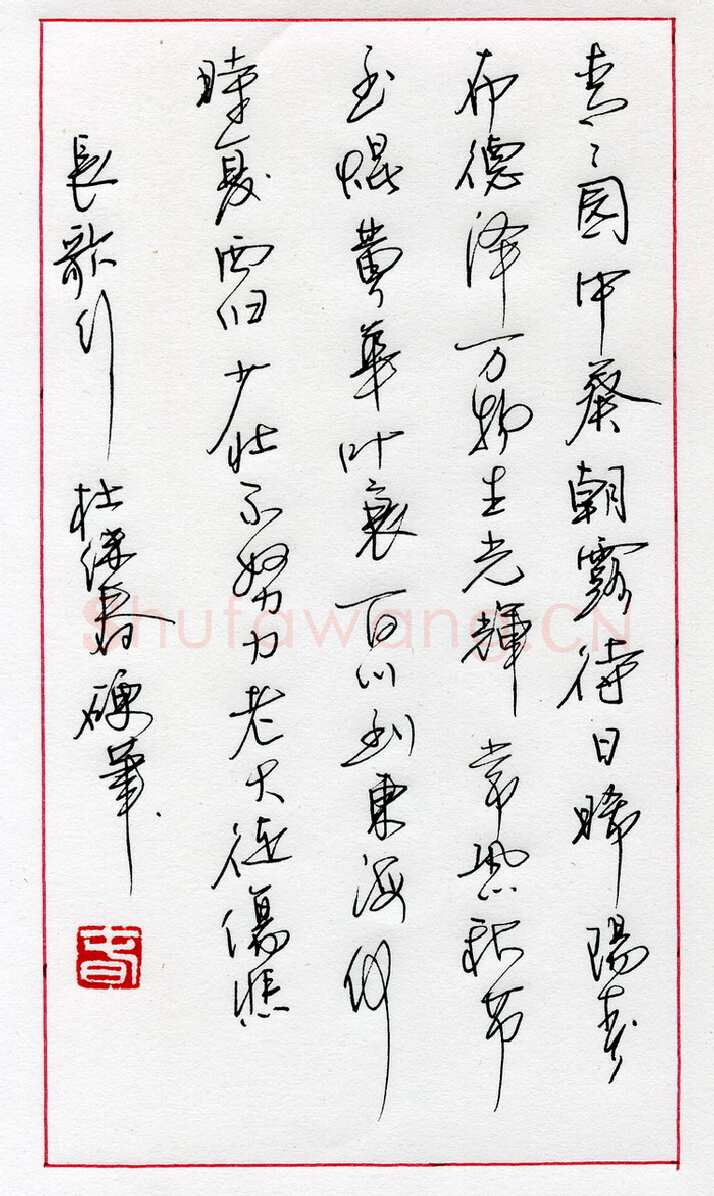 青〻園中葵朝露待日晞陽春
布德泽万物生光輝常恐秋节
至焜黄華叶衰百川到東海何
時复西归少壮不努力老大徒傷悲
長歌行 杜保春硬筆
春
Shufawang.CN